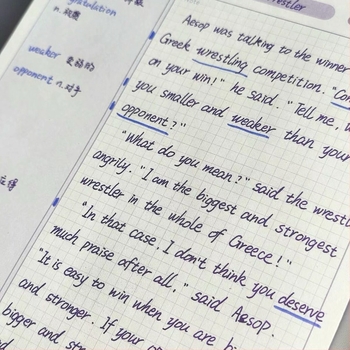 gratulation
n.祝贺
weaker 更弱的
opponent n.对手
wrestler
Aesop was talking to the winner
Greek wrestling competition. "Con
on your win!" he said. "Tell me, w
you smaller and weaker than your
opponent?"
"What do you mean?" said the wrestl
angrily. "I am the biggest and strongest
wrestler in the whole of Greece!"
"In that case, I don't think you deserve
much praise after all," said Aesop.
"It is easy to win when you are b
and stronger. If your
bigger and str